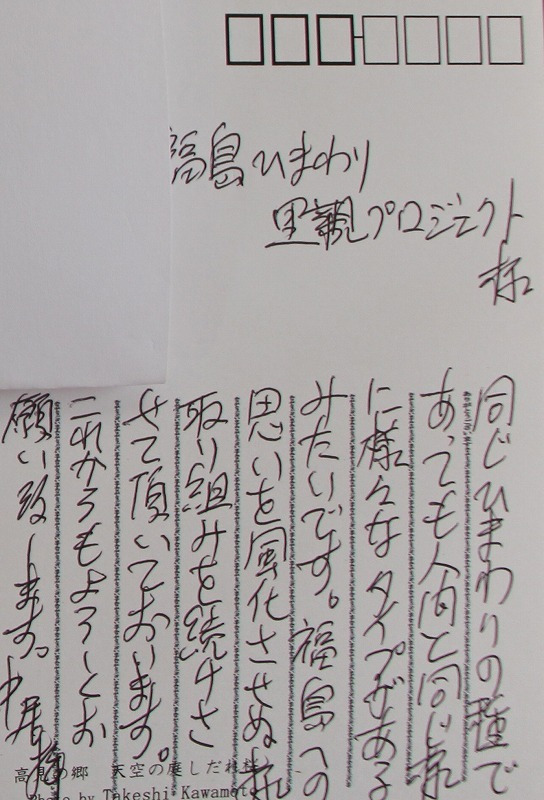 福島ひまわり
里親プロジェクト
様
同じひまわりの種で
あっても人間と同じ様
に様々なタイプがある
みたいです。福島への
思いを風化させぬ様
取り組みを続けさ
せて頂いております。
これからもよろしくお
願い致します。
高見の郷 天空の庭しだれ桜
Photo by Takeshi Kawamoto